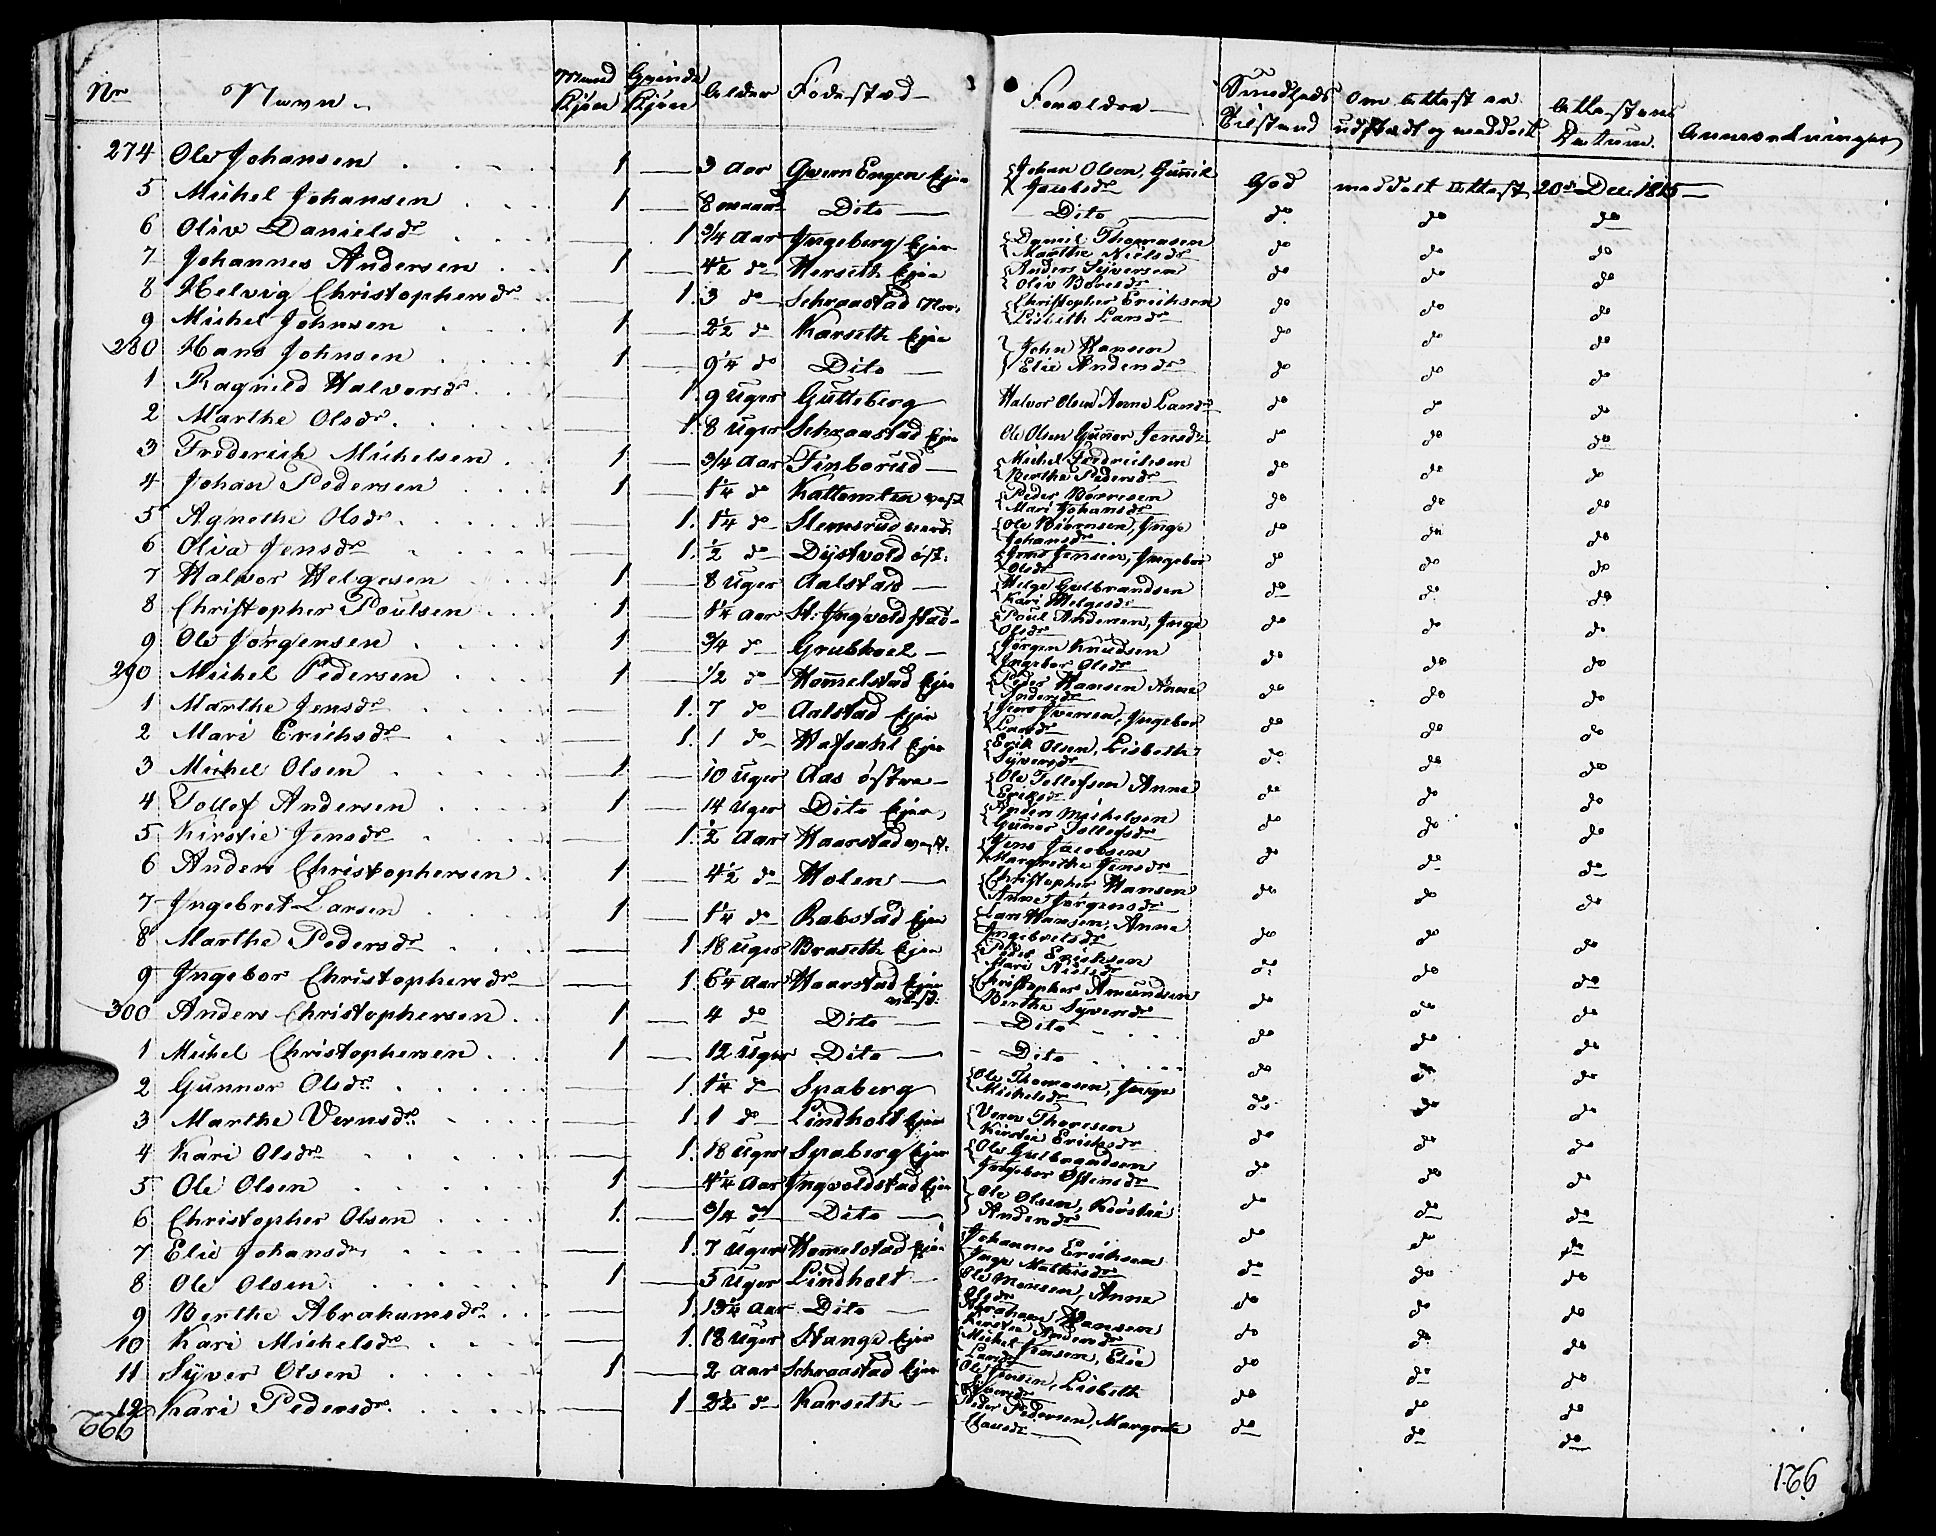 Nr Navn Mand Kjøn Qvinde Kjøn Alder Fødestæd Forældre Sundheds Tilstand Om Attest er udstædt og meddelt Attestens Datum. Anmærkninger
274 Ole Johansen 1 3 Aar Qvern Engen Ejer Johan Olsen, Gunnil Jacobsdr God meddelt Attest 20de Dec. 1815
5 Michel Johansen 1 8 maan Dito Dito do do do
6 Olive Danielsdr 1 3/4 Aar Ingeberg Ejer Daniel Thomasen Marthe Nielsdr do do do
7 Johannes Andersen 1 4 1/2 do Herseth Ejer Anders Syversen Oliv Boresdr do do do
8 Helvig Christophersdr 1 3 do Schraastad Nor. Christopher Erichsen Lisbeth Larsdr do do do
9 Michel Johnsen 1 2 1/2 do Karseth Ejer John Hansen Elie Andersdr do do do
280 Hans Johnsen 1 9 1/4 do Dito do do do
1 Ragnild Halvorsdr 1 9 Uger Gutteberg Halvor Olsen Anne Larsdr do do do
2 Marthe Olsdr 1 8 Uger Schraastad Ejer Ole Olsen Gunnor Jensdr do do do
3 Frederich Michelsen 1 3/4 Aar Finborud Michel Fredrichsen Berthe Pedersdr do do do
4 Johan Pedersen 1 1 1/4 do Kattomten vest Peder Børresen Mari Johansdr do do do
5 Agnethe Olsdr 1 1 1/4 do Stensrud nord. Ole Biørnsen, Inge Johansdr do do do
6 Olia Jensdr 1 1/2 do Dystvold øst. Jens Jensen, Ingebor Olsdr do do do
7 Halvor Helgesen 1 8 Uger Aalstad Helge Gulbrandsen Kari Helgesdr do do do
8 Christopher Poulsen 1 1 1/4 Aar St: Ingvoldstad Poul Andersen, Inge Olsdr do do do
9 Ole Jørgensen 1 3/4 do Grubhoel Jørgen Knudsen Ingebor Olsdr do do do
290 Michel Pedersen 1 1/2 do Hommelstad Ejer Peder Hansen Anne Andersdr do do do
1 Marthe Jensdr 1 7 do Aalstad Ejer Jens Iversen, Ingebor Larsdr do do do
2 Mari Erichsdr 1 1 do Hafsahl Ejer Erik Olsen, Lisbeth Syversdr do do do
3 Michel Olsen 1 10 Uger Aas østre Ole Tollefsen Anne Eriksdr do do do
4 Tollef Andersen 1 14 Uger Dito Ejer Anders Michelsen Gunnor Tollefsdr do do do
5 Kirstie Jensdr 1 1/2 Aar Haarstad vest. Jens Jacobsen Margrethe Jensdr do do do
6 Anders Christophersen 1 4 1/2 do Holen Christopher Hansen Anne Jørgensdr do do do
7 Ingebret Larsen 1 1 1/4 do Rabstad Ejer Lars Hansen, Anne Ingebretsdr do do do
8 Marthe Pedersdr 1 18 Uger Braseth Ejer Peder Erichsen Mari Nielsdr do do do
9 Ingebor Christophersdr 1 6 1/4 Aar Haarstad Ejer vest. Christopher Amundsen Berthe Syversdr do do do
300 Anders Christophersen 1 4 do Dito Dito do do do
1 Michel Christophersen 1 12 Uger Dito Dito do do do
2 Gunnor Olsdr 1 1 1/4 do Spaberg Ole Thomasen, Inge Michelsdr do do do
3 Marthe Vernsdr 1 1 do Lindholt Ejer Vern Thoresen Kirstie Eriksdr do do do
4 Kari Olsdr 1 18 Uger Spaberg Ejer Ole Gulbrandsen Ingebor Østensdr do do do
5 Ole Olsen 1 4 1/4 Aar Ingvoldstad Ejer Ole Olsen, Kirstie Andersdr do do do
6 Christopher Olsen 1 3/4 do Dito do do do
7 Elie Johansdr 1 7 Uger Hommelstad Ejer Johannes Erichsen Inge Mathisdr do do do
8 Ole Olsen 1 5 Uger Lindholt Ole Monsen, Anne Olsdr do do do
9 Berthe Abrahamsdr 1 1 3/4 Aar Dito Abraham Hansen Kirstie Andersdr do do do
10 Kari Michelsdr 1 18 Uger Stange Ejer Michel Jensen, Elie Larsdr do do do
11 Syver Olsen 1 2 Aar Schraastad Ejer Ole Jensen, Lisbeth Syversdr do do do
12 Kari Pedersdr 1 2 1/2 do Karseth Peder Pedersen, Margrete Clausdr do do do